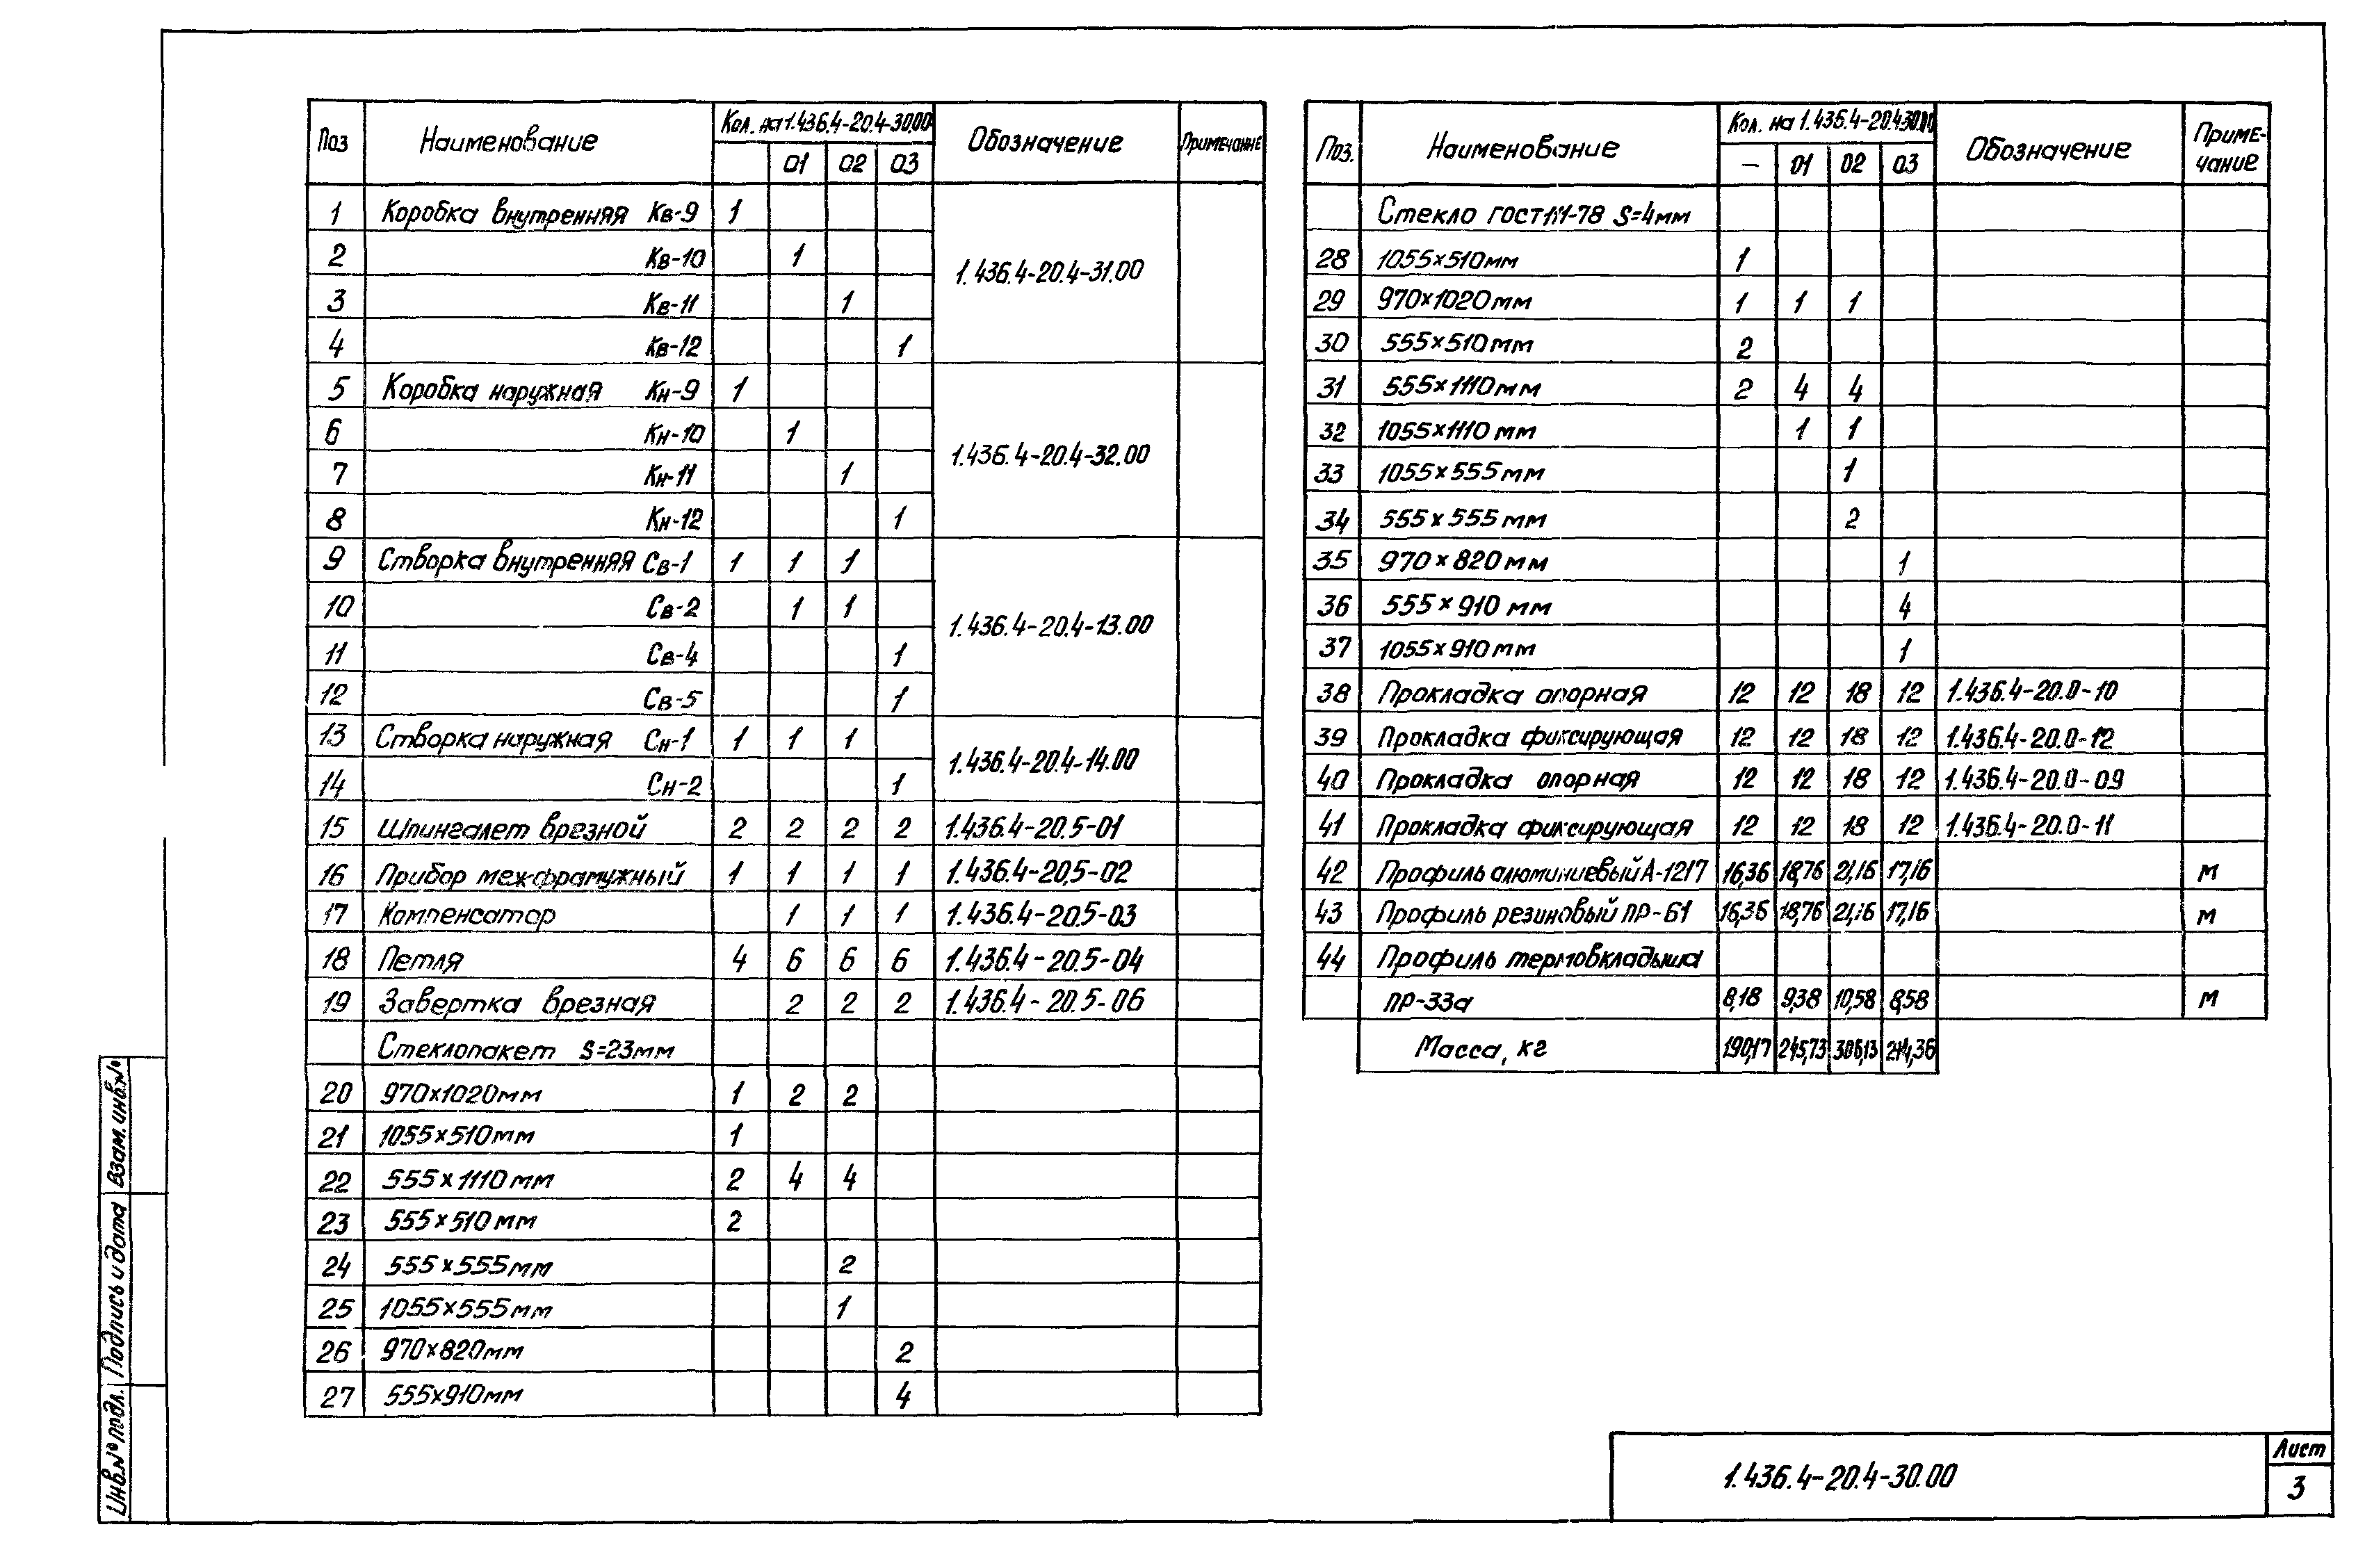 Поз Наименование Кол. на 1.436.4-20.4-30.00 Обозначение Примечание
01 02 03
1 Коробка внутренняя Кв-9 1
2 Кв-10 1
1.436.4-20.4-31.00
3 Кв-11 1
4 Кв-12 1
5 Коробка наружная Кн-9 1
6 Кн-10 1
1.436.4-20.4-32.00
7 Кн-11 1
8 Кн-12 1
9 Створка внутренняя Св-1 1 1 1
10 Св-2 1 1
1.436.4-20.4-13.00
11 Св-4 1
12 Св-5 1
13 Створка наружная Сн-1 1 1 1
1.436.4-20.4-14.00
14 Сн-2 1
15 Шпингалет врезной 2 2 2 2 1.436.4-20.5-01
16 Прибор межфрамужный 1 1 1 1 1.436.4-20.5-02
17 Компенсатор 1 1 1 1.436.4-20.5-03
18 Петля 4 6 6 6 1.436.4-20.5-04
19 Завертка врезная 2 2 2 1.436.4-20.5-06
Стеклопакет S=23мм
20 970×1020мм 1 2 2
21 1055×510мм 1
22 555×1110мм 2 4 4
23 555×510мм 2
24 555×555мм 2
25 1055×555мм 1
26 970×820мм 2
27 555×910мм 4
Поз. Наименование Кол. на 1.436.4-20.4-30.00 Обозначение Приме-
чание
— 01 02 03
Стекло ГОСТ 111-78 S=4мм
28 1055×510мм 1
29 970×1020мм 1 1 1
30 555×510мм 2
31 555×1110мм 2 4 4
32 1055×1110мм 1 1
33 1055×555мм 1
34 555×555мм 2
35 970×820мм 1
36 555×910мм 4
37 1055×910мм 1
38 Прокладка опорная 12 12 18 12 1.436.4-20.0-10
39 Прокладка фиксирующая 12 12 18 12 1.436.4-20.0-12
40 Прокладка опорная 12 12 18 12 1.436.4-20.0-09
41 Прокладка фиксирующая 12 12 18 12 1.436.4-20.0-11
42 Профиль алюминиевый А-1217 16,36 18,76 21,16 17,16 м
43 Профиль резиновый ПР-61 16,36 18,76 21,16 17,16 м
44 Профиль термовкладыша
ПР-33а 8,18 9,38 10,58 8,58 м
Масса, кг 190,17 245,73 306,13 214,36
Инв.№ подл. Подпись и дата Взам.инв.№
1.436.4-20.4-30.00
Лист
3